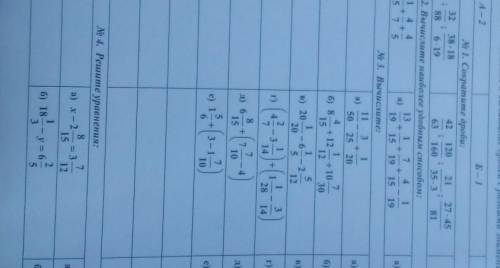 А – 2 Б – 1
№ 1. Сократите дроби:
32/88; 38·18/6·19 42/63; 120/160; 21/35·3; 27·45/81
2. Вычислите наиболее удобным способом:
1/5 + 4/7 + 4/5 а) 13/19 + 1/15 + 7/19 + 4/15 − 1/19 а)
№ 3. Вычислите:
а) 11/50 − 3/25 + 1/20 а)
б) 8 4/15 + 12 1/12 + 10 7/30 б)
в) 20 1/20 − 6 1/5 − 2 5/12 в)
г) (4 3/7 − 3 1/14) + (1 1/28 − 3/14) г)
д) 8/15 + (7 7/10 − 4) д)
е) 1 5/6 + (3 − 1 7/10) е)
№ 4. Решите уравнения:
а) x − 2 8/15 = 3 7/12
б) 18 1/3 − y = 6 2/5